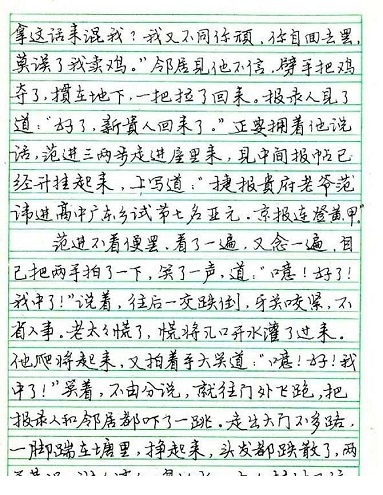 拿这话来混我？我又不同你顽，你自回去罢，
莫误了我卖鸡。”邻居见他不信，劈手把鸡
夺了，掼在地下，一把拉了回来。报录人见了
道：“好了，新贵人回来了。”正要拥着他说
话，范进三两步走进屋里来，见中间报帖已
经升挂起来，上写道：“捷报贵府老爷范
讳进高中广东乡试第七名亚元。京报连登黄甲。”
范进不看便罢，看了一遍，又念一遍，自
己把两手拍了一下，笑了一声，道：“噫！好了！
我中了！”说着，往后一交跌倒，牙关咬紧，不
省人事。老太太慌了，慌将几口开水灌了过来。
他爬将起来，又拍着手大笑道：“噫！好！我
中了！”笑着，不由分说，就往门外飞跑，把
报录人和邻居都吓了一跳。走出大门不多路，
一脚踹在塘里，挣起来，头发都跌散了，两